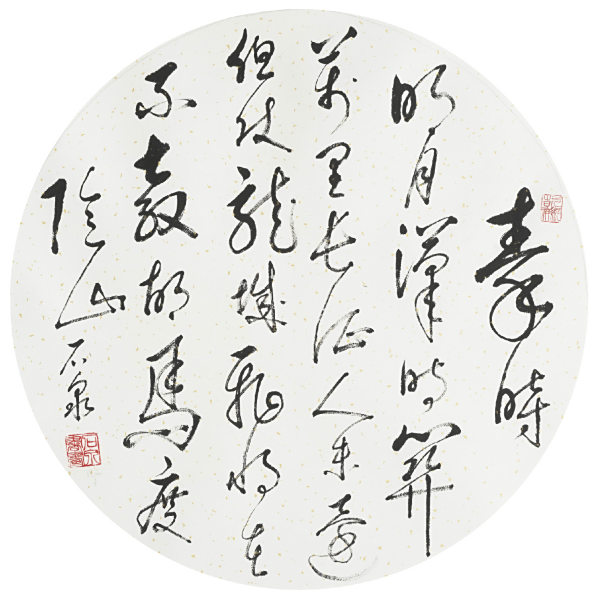 秦時
明月漢時關
萬里長征人未還
但使龍城飛將在
不教胡馬度
陰山 石泉